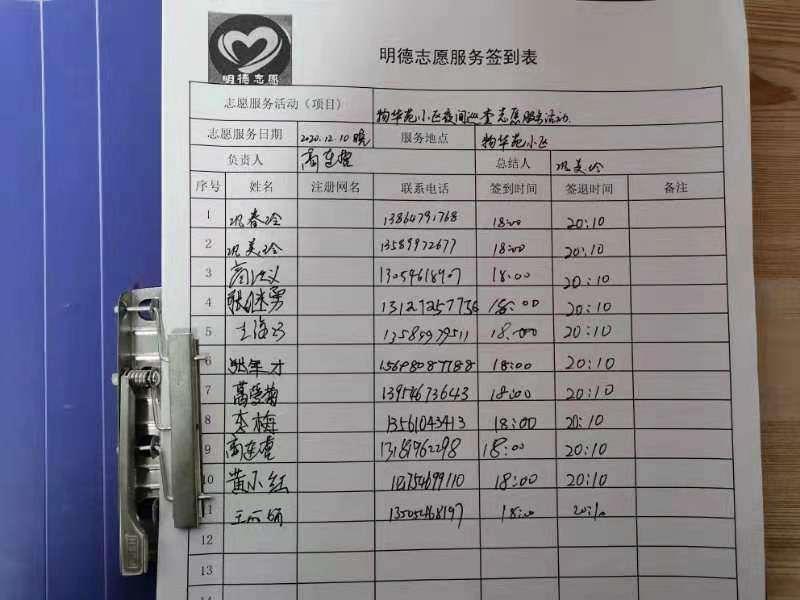 明德志愿
明德志愿服务签到表
志愿服务活动（项目） 物华苑小区夜间巡查志愿服务活动
志愿服务日期 2020.12.10晚 服务地点 物华苑小区
负责人 总结人 巩美玲
序号 姓名 注册网名 联系电话 签到时间 签退时间 备注
1 巩春玲 13864791768 18:00 20:10
2 巩美玲 13589972677 18:00 20:10
3 18:00 20:10
4 18:00 20:10
5 13585979511 18:00 20:10
6 18:00 20:10
7 葛爱菊 13954673643 18:00 20:10
8 李梅 13561043413 18:00 20:10
9 18:00 20:10
10 黄小红 18:00 20:10
11 18:00 20:10
12
13
14